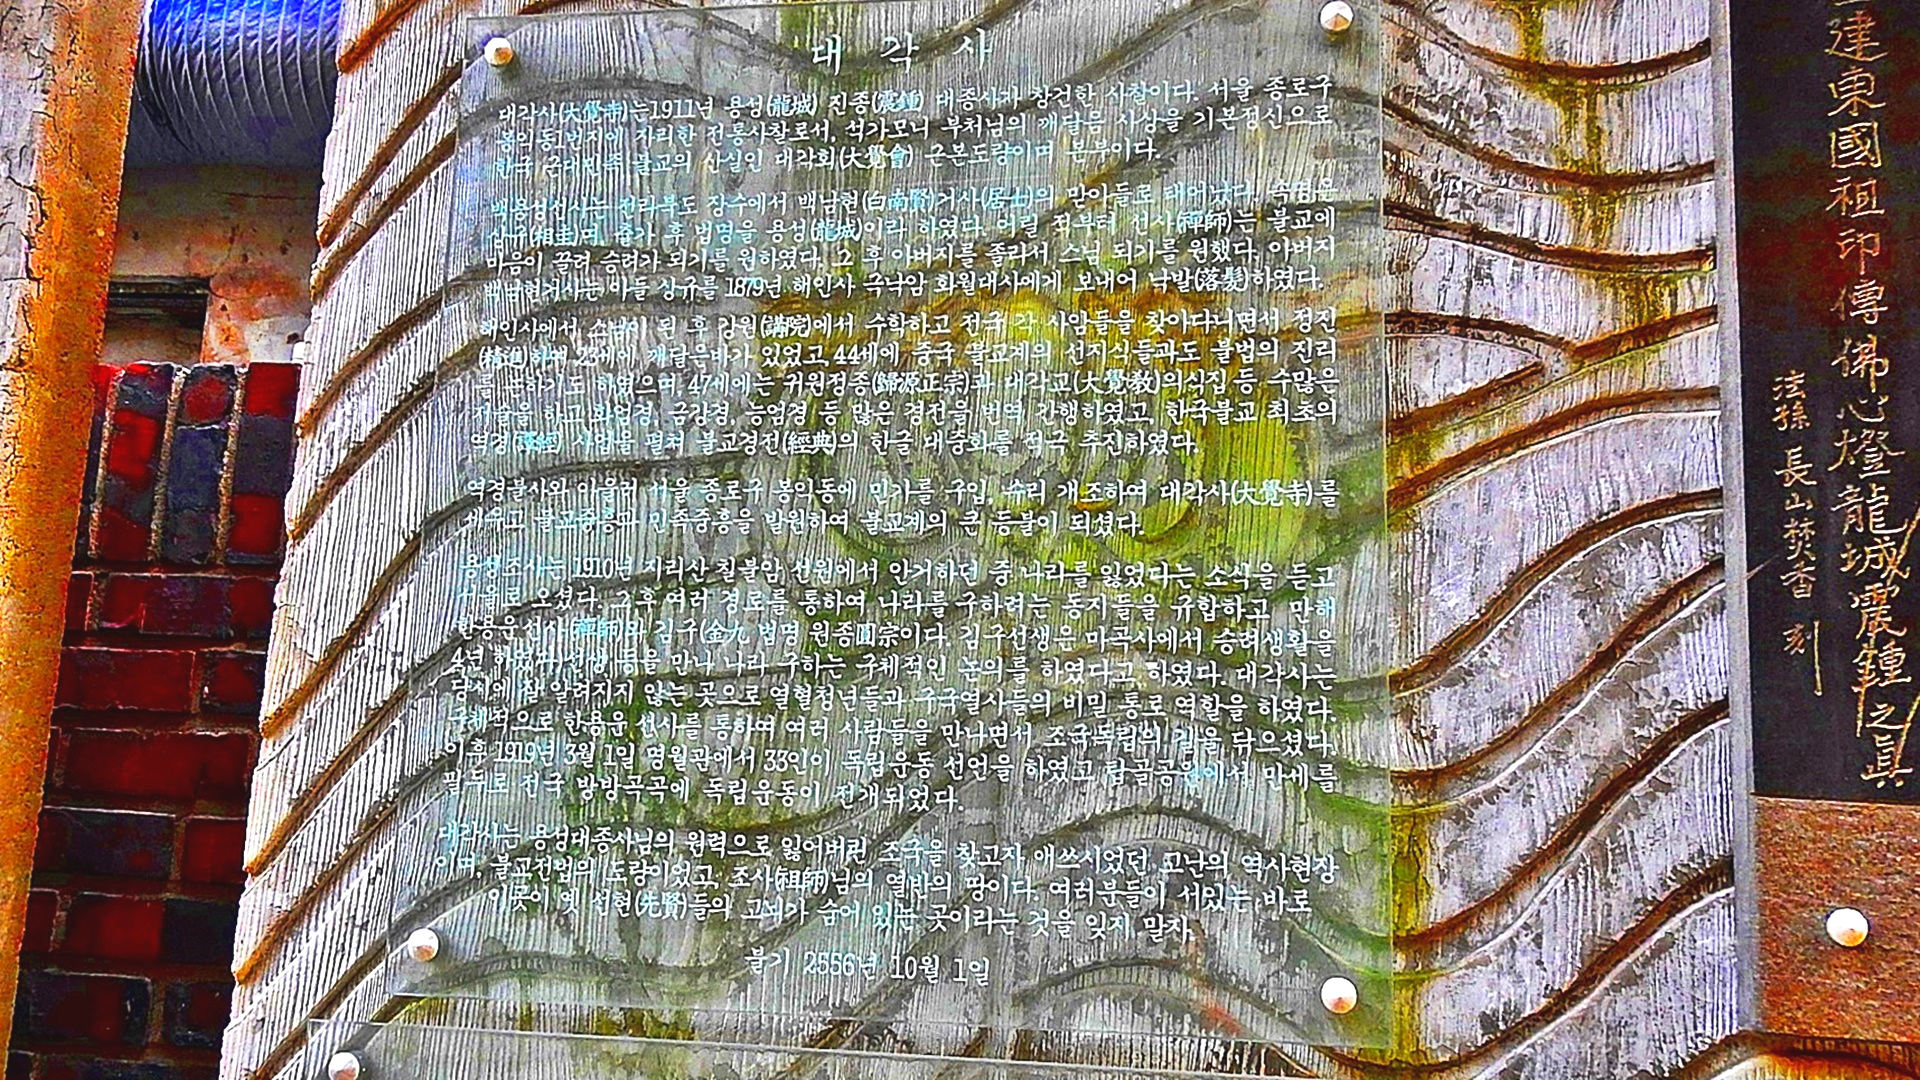 대 각 사
대각사(大覺寺)는1911년 용성(龍城) 진종(震鍾) 대종사가 창건한 사찰이다. 서울 종로구
봉익동1번지에 자리한 전통사찰로서, 석가모니 부처님의 깨달음 사상을 기본정신으로
한국 근대민족 불교의 산실인 대각회(大覺會) 근본도량이며 본부이다.
백용성선사는 전라북도 장수에서 백남현(白南賢)거사(居士)의 맏아들로 태어났다. 속명은
상규(相奎)며, 출가 후 법명을 용성(龍城)이라 하였다. 어릴 적부터 선사(禪師)는 불교에
마음이 끌려 승려가 되기를 원하였다. 그 후 아버지를 졸라서 스님 되기를 원했다. 아버지
백남현거사는 아들 상규를 1879년 해인사 극락암 화월대사에게 보내어 낙발(落髮)하였다.
해인사에서 스님이 된 후 강원(講院)에서 수학하고 전국 각 사암들을 찾아다니면서 정진
(精進)하여 23세에 깨달은바가 있었고, 44세에 중국 불교계의 선지식들과도 불법의 진리
를 논하기도 하였으며, 47세에는 귀원정종(歸源正宗)과 대각교(大覺敎)의식집 등 수많은
저술을 하고 화엄경, 금강경, 능엄경 등 많은 경전을 번역 간행하였고, 한국불교 최초의
역경(譯經) 사업을 펼쳐 불교경전(經典)의 한글 대중화를 적극 추진하였다.
역경불사와 아울러 서울 종로구 봉익동에 민가를 구입, 수리 개조하여 대각사(大覺寺)를
세우고 불교중흥과 민족중흥을 발원하여 불교계의 큰 등불이 되셨다.
용성조사는 1910년 지리산 칠불암 선원에서 안거하던 중 나라를 잃었다는 소식을 듣고
서울로 오셨다. 그후 여러 경로를 통하여 나라를 구하려는 동지들을 규합하고, 만해
한용운선사(禪師)와 김구(金九 법명 원종圓宗이다. 김구선생은 마곡사에서 승려생활을
4년 하였다)선생 등을 만나 나라 구하는 구체적인 논의를 하였다고, 하였다. 대각사는
당시에 잘 알려지지 않는 곳으로 열혈청년들과 구국열사들의 비밀 통로 역할을 하였다.
구체적으로 한용운 선사를 통하여 여러 사람들을 만나면서 조국독립의 길을 닦으셨다.
이후 1919년 3월 1일 명월관에서 33인이 독립운동 선언을 하였고 탑골공원에서 만세를
필두로 전국 방방곡곡에 독립운동이 전개되었다.
대각사는 용성대종사님의 원력으로 잃어버린 조국을 찾고자 애쓰시었던 고난의 역사현장
이며, 불교전법의 도량이었고, 조사(祖師)님의 열반의 땅이다. 여러분들이 서있는 바로
이곳이 옛 선현(先賢)들의 고뇌가 숨어 있는 곳이라는 것을 잊지 말자.
불기 2556년 10월 1일
建東國祖印傳佛心燈龍城震鍾之眞
法孫 長山焚香 刻